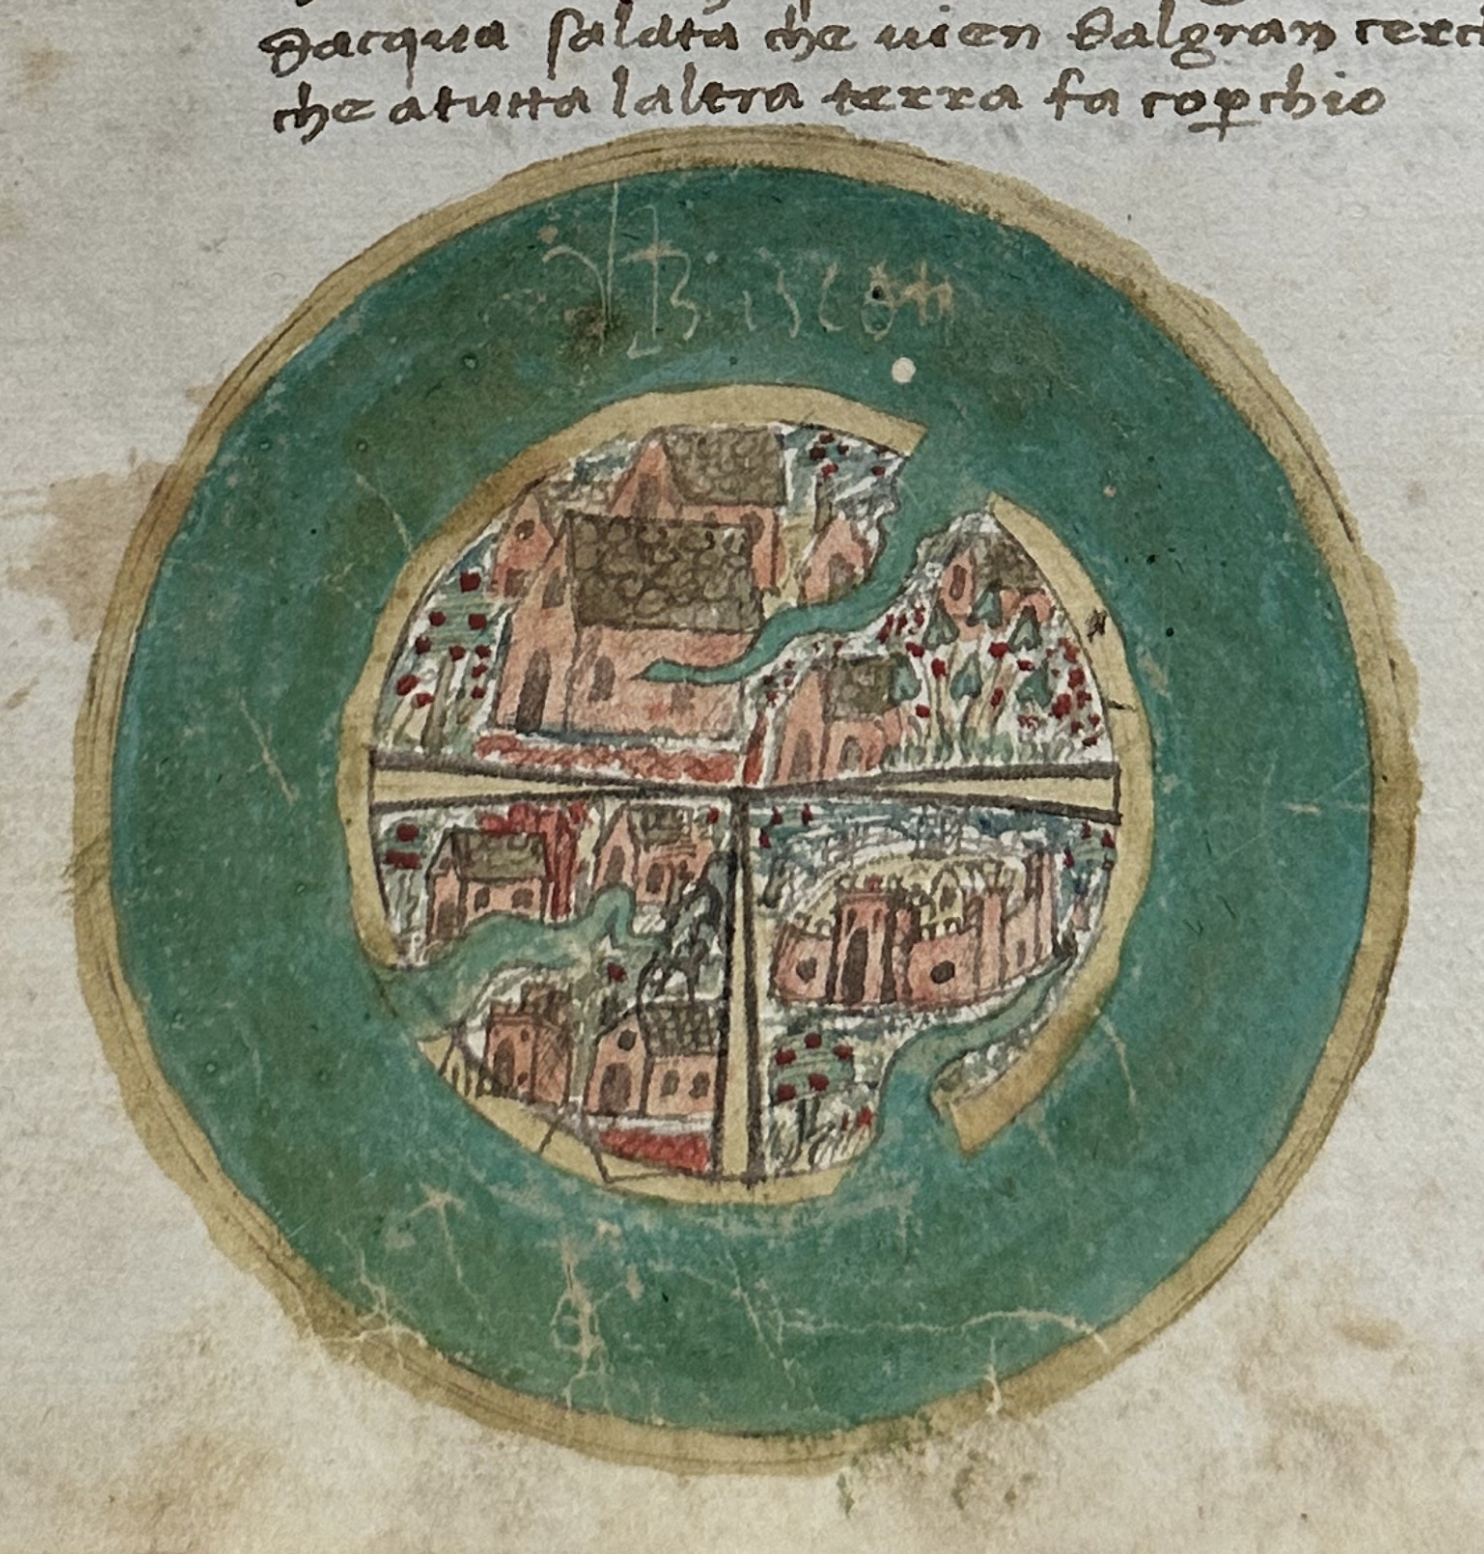 dacqua salata che uien dalgran cerc
che atutta laltra terra fa copchio